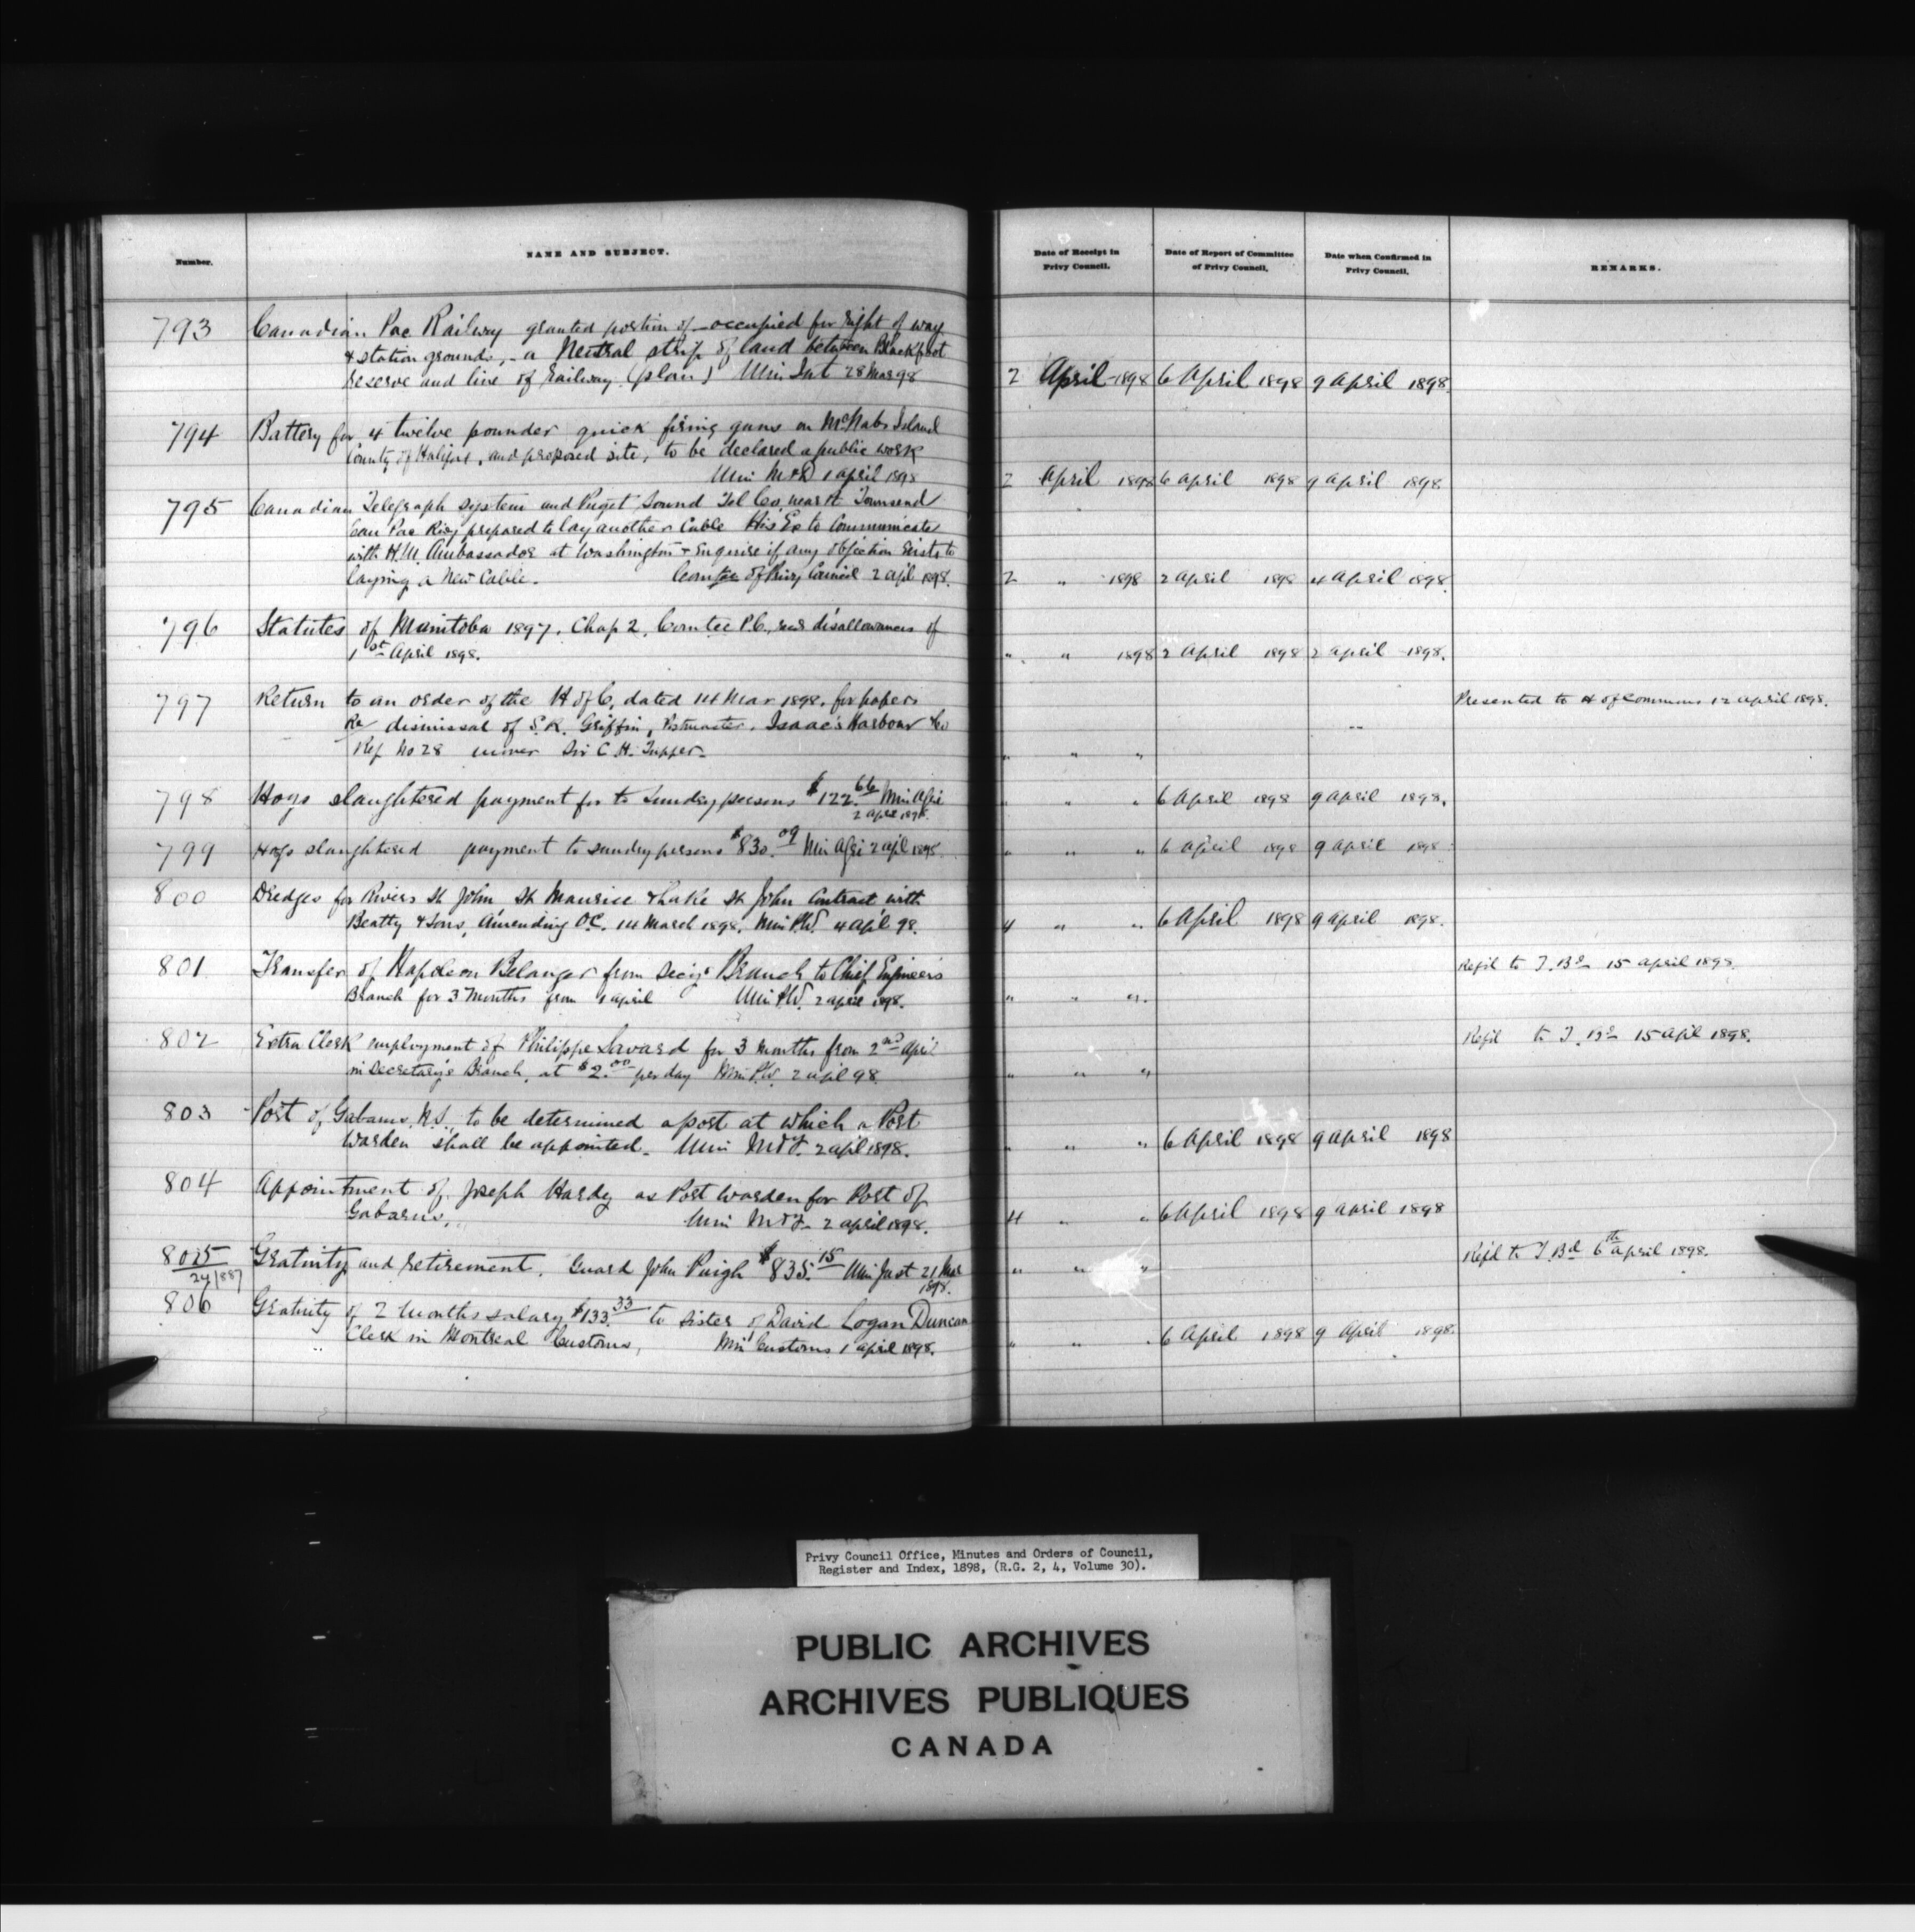 Number.
NAME AND SUBJECT.
Date of Receipt in Privy Council.
Date of Report of Committee of Privy Council.
Date when Confirmed in Privy Council.
REMARKS.
793 Canadian Pac Railway granted portion of - occupied for right of way
& station grounds, - a Neutral strip of land between Blackfoot
reserve and line of railway (plan) Min Int 28 Mar 98 2 April 1898 6 April 1898 9 April 1898
794 Battery for 4 twelve pounder quick firing guns on McNabs Island
County of Halifax, and proposed site, to be declared a public work
Min M&D 1 April 1898 2 April 1898 6 April 1898 9 April 1898
795 Canadian Telegraph system and Puget Sound Tel Co. near Pt Townsend
Can Pac Rlwy prepared to lay another Cable His Ex to Communicate
with H.M. Ambassador at Washington & enquire if any objection exists to
laying a New Cable. Comtee of Privy Council 2 apl 1898. 2 " 1898 2 April 1898 4 April 1898.
796 Statutes of Manitoba 1897. Chap 2. Comtee P.C. disallowances of
1st April 1898. " " 1898 2 April 1898 2 April 1898.
797 Return to an order of the H of C. dated 14 Mar 1898, for papers Presented to H of Commons 12 April 1898.
Re dismissal of S.R. Griffin, Postmaster, Isaac's Harbour
Ref No 28 mover Sir C. H. Tupper. " " "
798 Hogs slaughtered payment for to Sundry persons $122.66 Min Agri
2 April 1898. " " " 6 April 1898 9 April 1898.
799 Hogs slaughtered payment to sundry persons $830.09 Min Agri 2 apl 1898. " " " 6 April 1898 9 April 1898
800 Dredges for Rivers St John St Maurice & Lake St John Contract with
Beatty & Sons, Amending O.C. 14 March 1898. Min P.W. 4 apl 98. 4 " " 6 April 1898 9 April 1898.
801. Transfer of Napoleon Belanger from Secy's Branch to Chief Engineers Refd to T. Bd 15 April 1898.
Branch for 3 Months from 1 April Min P.W. 2 April 1898. " " "
802 Extra Clerk employment of Philippe Savard for 3 months from 2nd April Refd to T. Bd 15 apl 1898.
in Secretary's Branch, at $2.00 per day Min P.W. 2 apl 98. " " "
803 Port of Gabarus, N.S., to be determined a port at which a Port
Warden shall be appointed. Min M&F. 2 apl 1898. " " " 6 April 1898 9 April 1898
804 Appointment of Joseph Hardy as Port Warden for Port of
Gabarus. Min M&F. 2 April 1898. 4 " " 6 April 1898 9 April 1898
805 Gratuity and retirement. Guard John Pugh $835.15 Min Just 21 Mar Refd to T. Bd 6th April 1898.
24/887 1898. " " "
806 Gratuity of 2 Months salary $133.33 to sister of David Logan Duncan
Clerk in Montreal Customs, Min Customs 1 April 1898. " " " 6 April 1898 9 April 1898
Privy Council Office, Minutes and Orders of Council,
Register and Index, 1898, (R.G. 2, 4, Volume 30).
PUBLIC ARCHIVES
ARCHIVES PUBLIQUES
CANADA